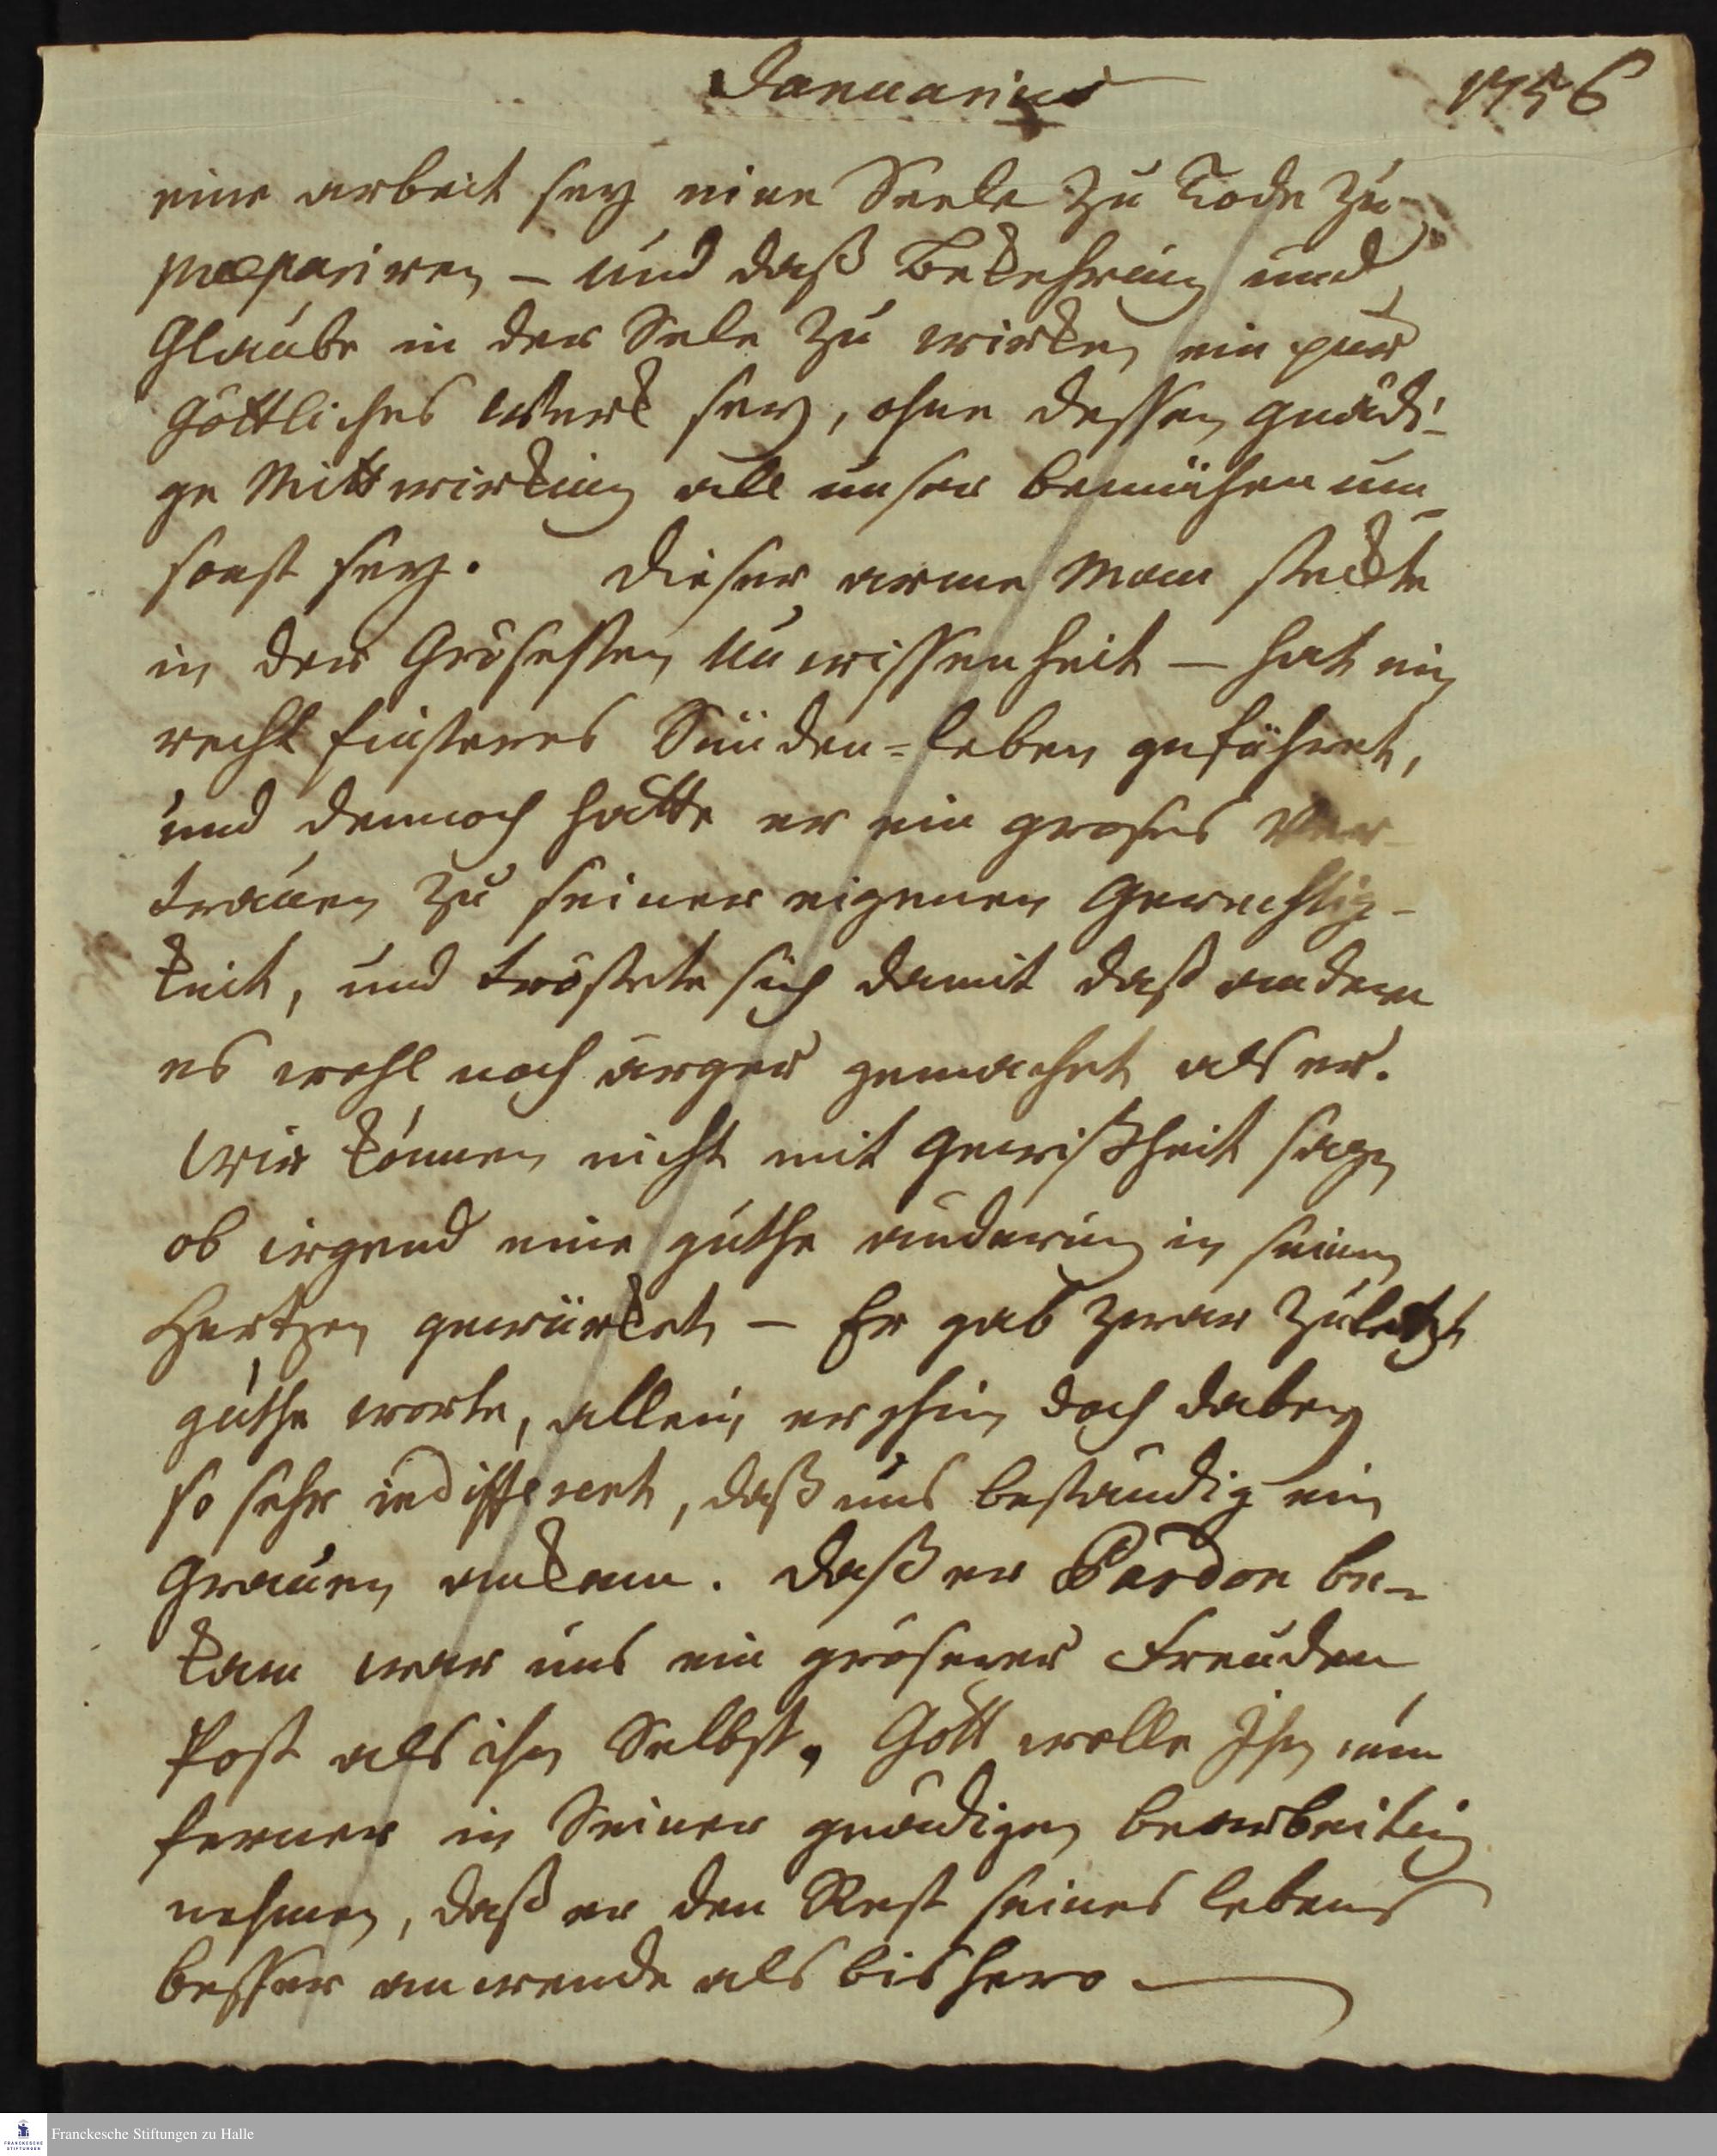 Januarius 1756
eine arbeit sey eine Seele zu Tode zu
præpariren – und daß Bekehrung und
Glaube in der Sele zu wirken ein pur
Göttliches Werk sey, ohne dessen gnädi-
ge Mittwirkung all unser bemühen um-
sonst sey. Dieser arme Mann steckte
in der Grösesten Unwissenheit – hat ein
recht finsteres Sünden=leben geführet,
und dennoch hatte er ein groses Ver-
trauen zu seiner eigenen Gerechtig-
keit, und tröstete sich damit daß andere
es wohl noch ärger gemachet als er.
Wir können nicht mit Gewißheit sagen
ob irgend eine guthe änderung in seinem
Hertzen gewürket – Er gab zwar zuletzt
guthe worte, allein er schin doch dabey
so sehr indifferent, daß uns beständig ein
Grauen ankam. Daß er Pardon be-
kam war uns ein gröserer Freuden
Post als ihm Selbst. Gott wolle Ihn nun
ferner in Seiner gnädigen bearbeitung
nehmen, daß er den Rest seines lebens
besser anwende als bishero
Franckesche Stiftungen zu Halle
FRANCKESCHE
STIFTUNGEN